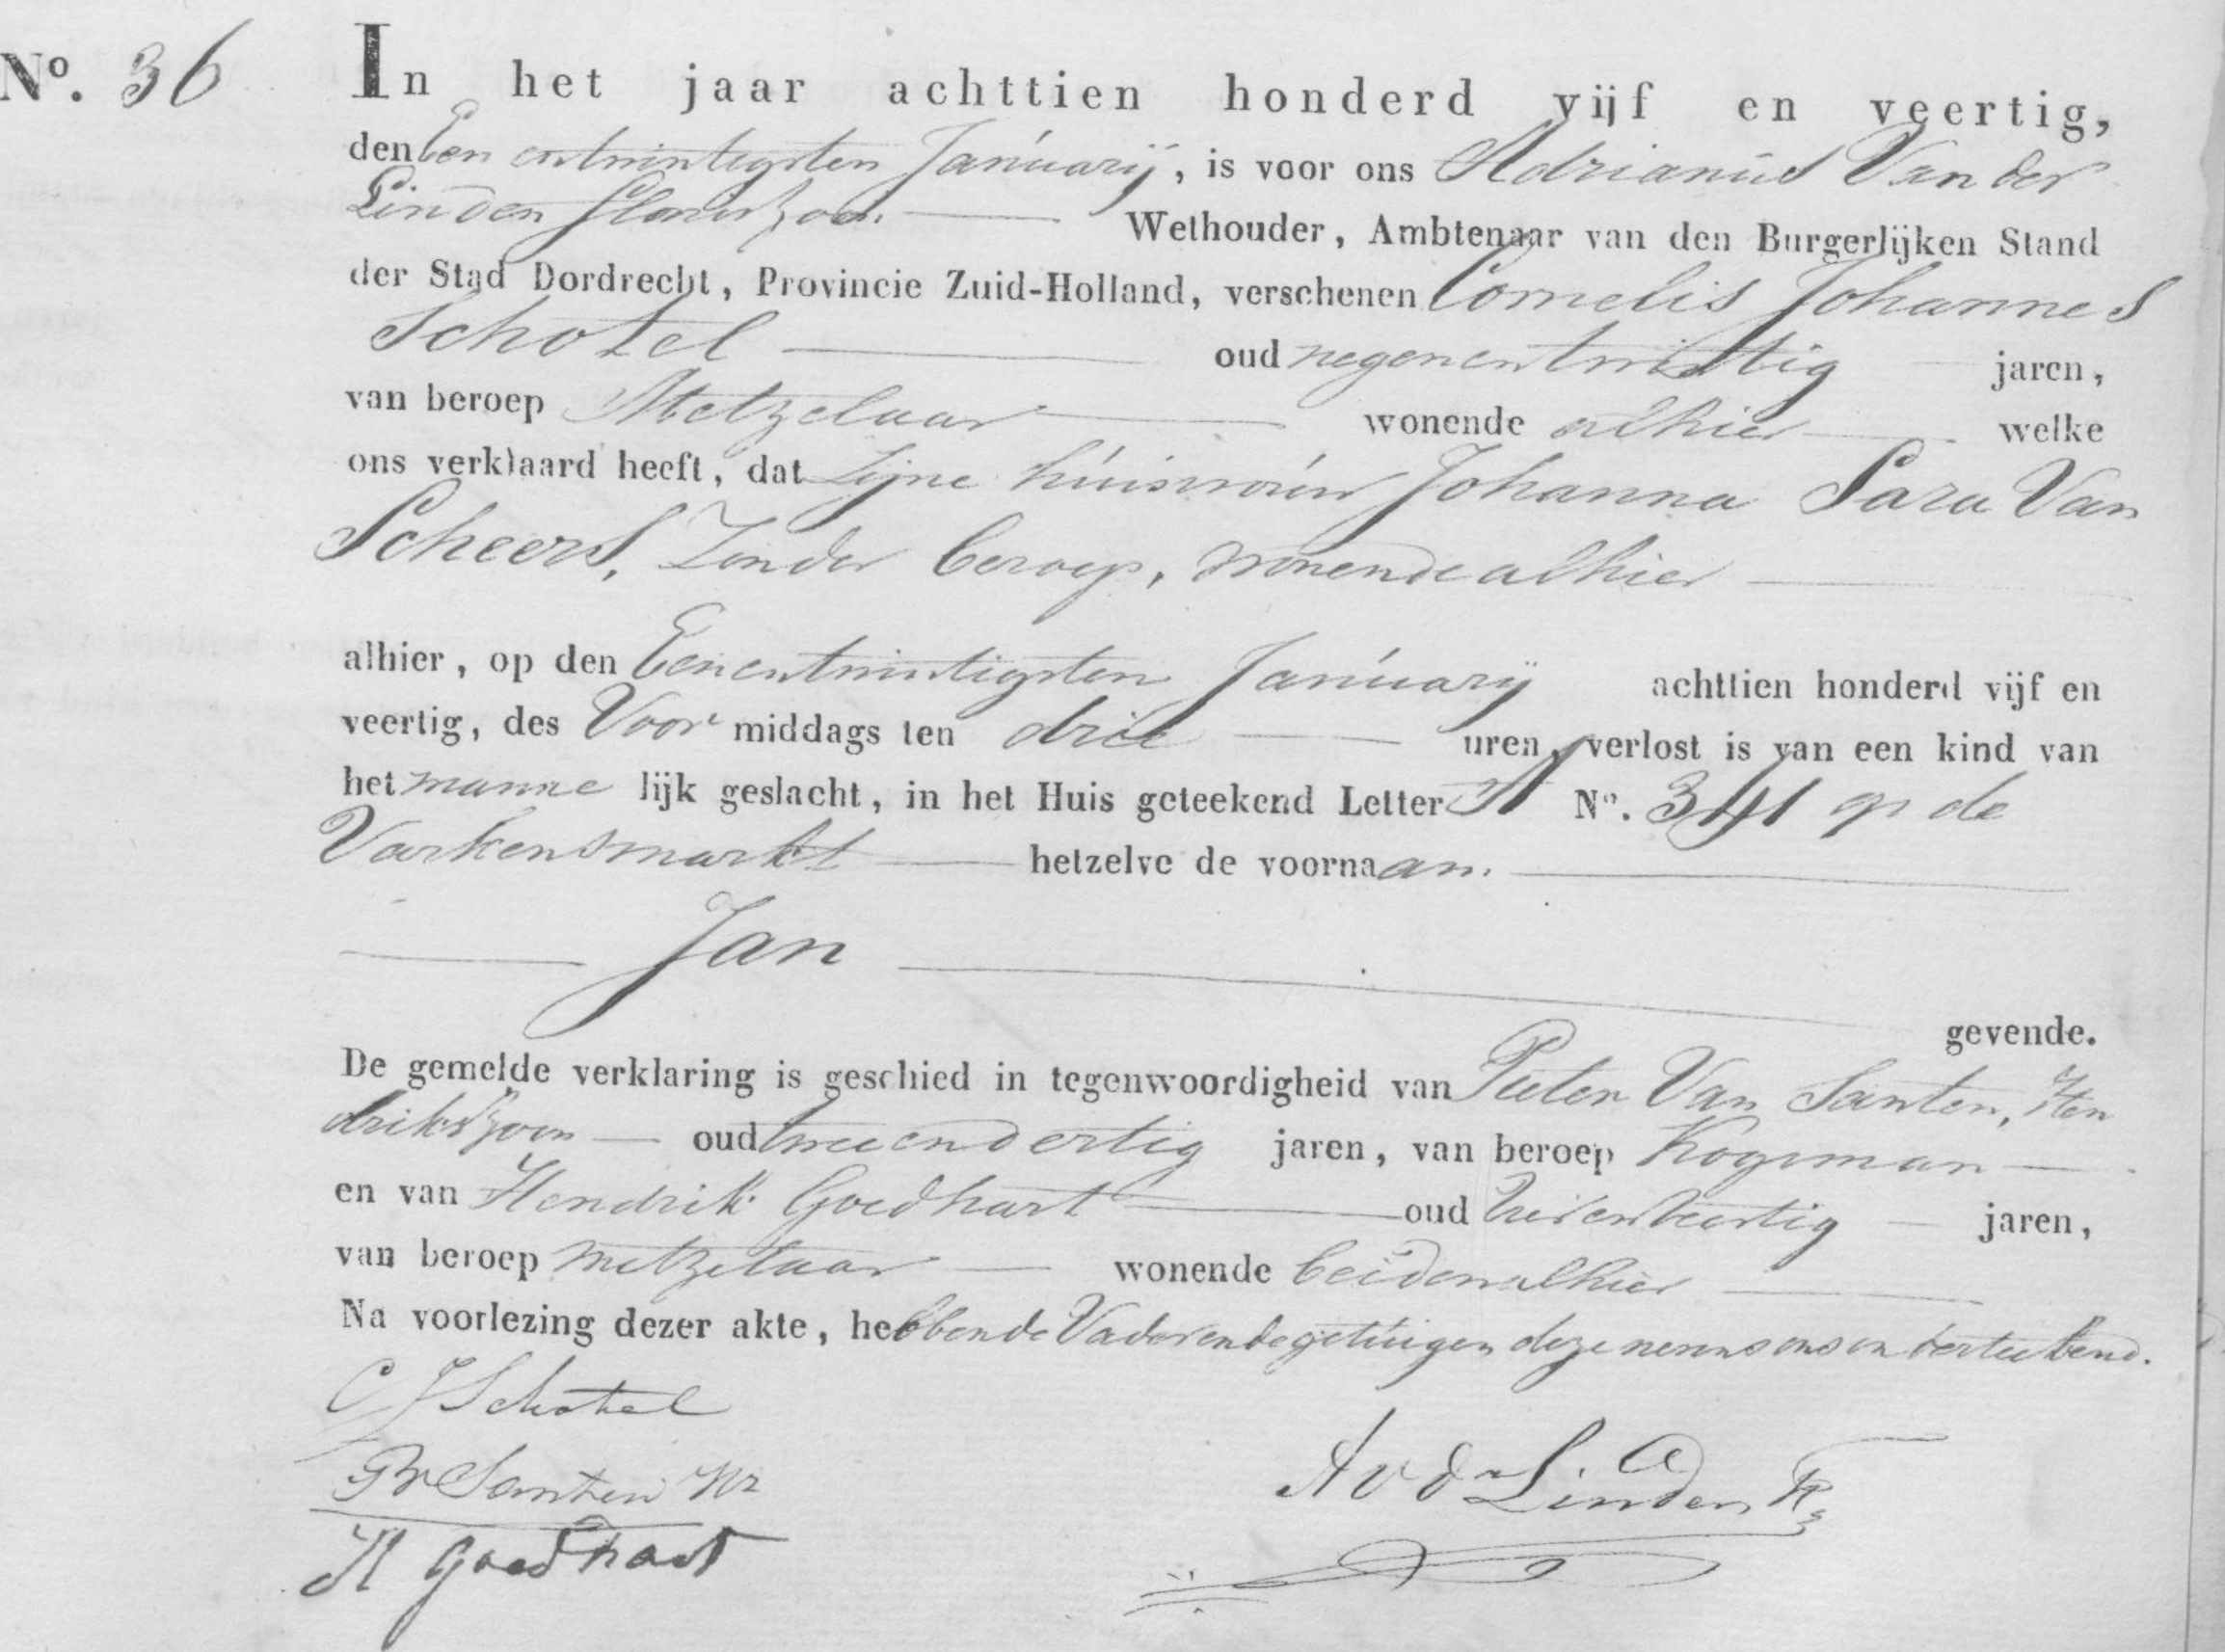 Nº. 36
In het jaar achttien honderd vijf en veertig,
den Een entwintigsten Januarij, is voor ons Adrianus Van der
Linden Floriszoon Wethouder, Ambtenaar van den Burgerlijken Stand
der Stad Dordrecht, Provincie Zuid-Holland, verschenen Cornelis Johannes
Schotel oud negenentwintig jaren,
van beroep Metzelaar wonende alhier welke
ons verklaard heeft, dat zijne huisvrouw Johanna Sara Van
Scheers, Zonder beroep, wonende alhier
alhier, op den Eenentwintigsten Januarij achttien honderd vijf en
veertig, des Voor middags ten drie uren, verlost is van een kind van
het manne lijk geslacht, in het Huis geteekend Letter A Nº. 341 op de
Varkensmarkt hetzelve de voornaam.
Jan
gevende.
De gemelde verklaring is geschied in tegenwoordigheid van Pieter Van Santen, Hen
drikszoon oud tweeendertig jaren, van beroep Koopman
en van Hendrik Goedhart oud jaren,
van beroep metzelaar wonende beiden alhier
Na voorlezing dezer akte, hebben de Vader en de getuigen deze nevens ons onderteekend.
C J Schotel
P v Santen Hz
H Goedhart
A v d Linden Fz